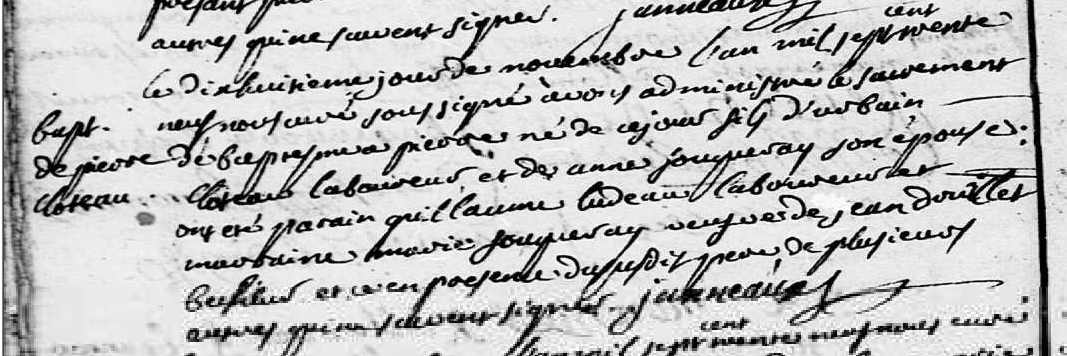 présant
autres qui ne savent signer. janneaux
cent
le dixhuitieme jour de novembre l'an mil sept trente
bapt. neuf nous curé soussigné avons administré le sacrement
de pierre de baptesme a pierre né de ce jour fils d'urbain
Cloteau. Cloteau laboureur et de anne jouqueray son épouse:
ont été parain guillaume ludeau laboureur et
marraine marie jouqueray veufve de jean douillet
et ce en presence du susdit pere de plusieurs
autres qui ne savent signer janneaux
cent
l'an mil sept trente neuf nous curé